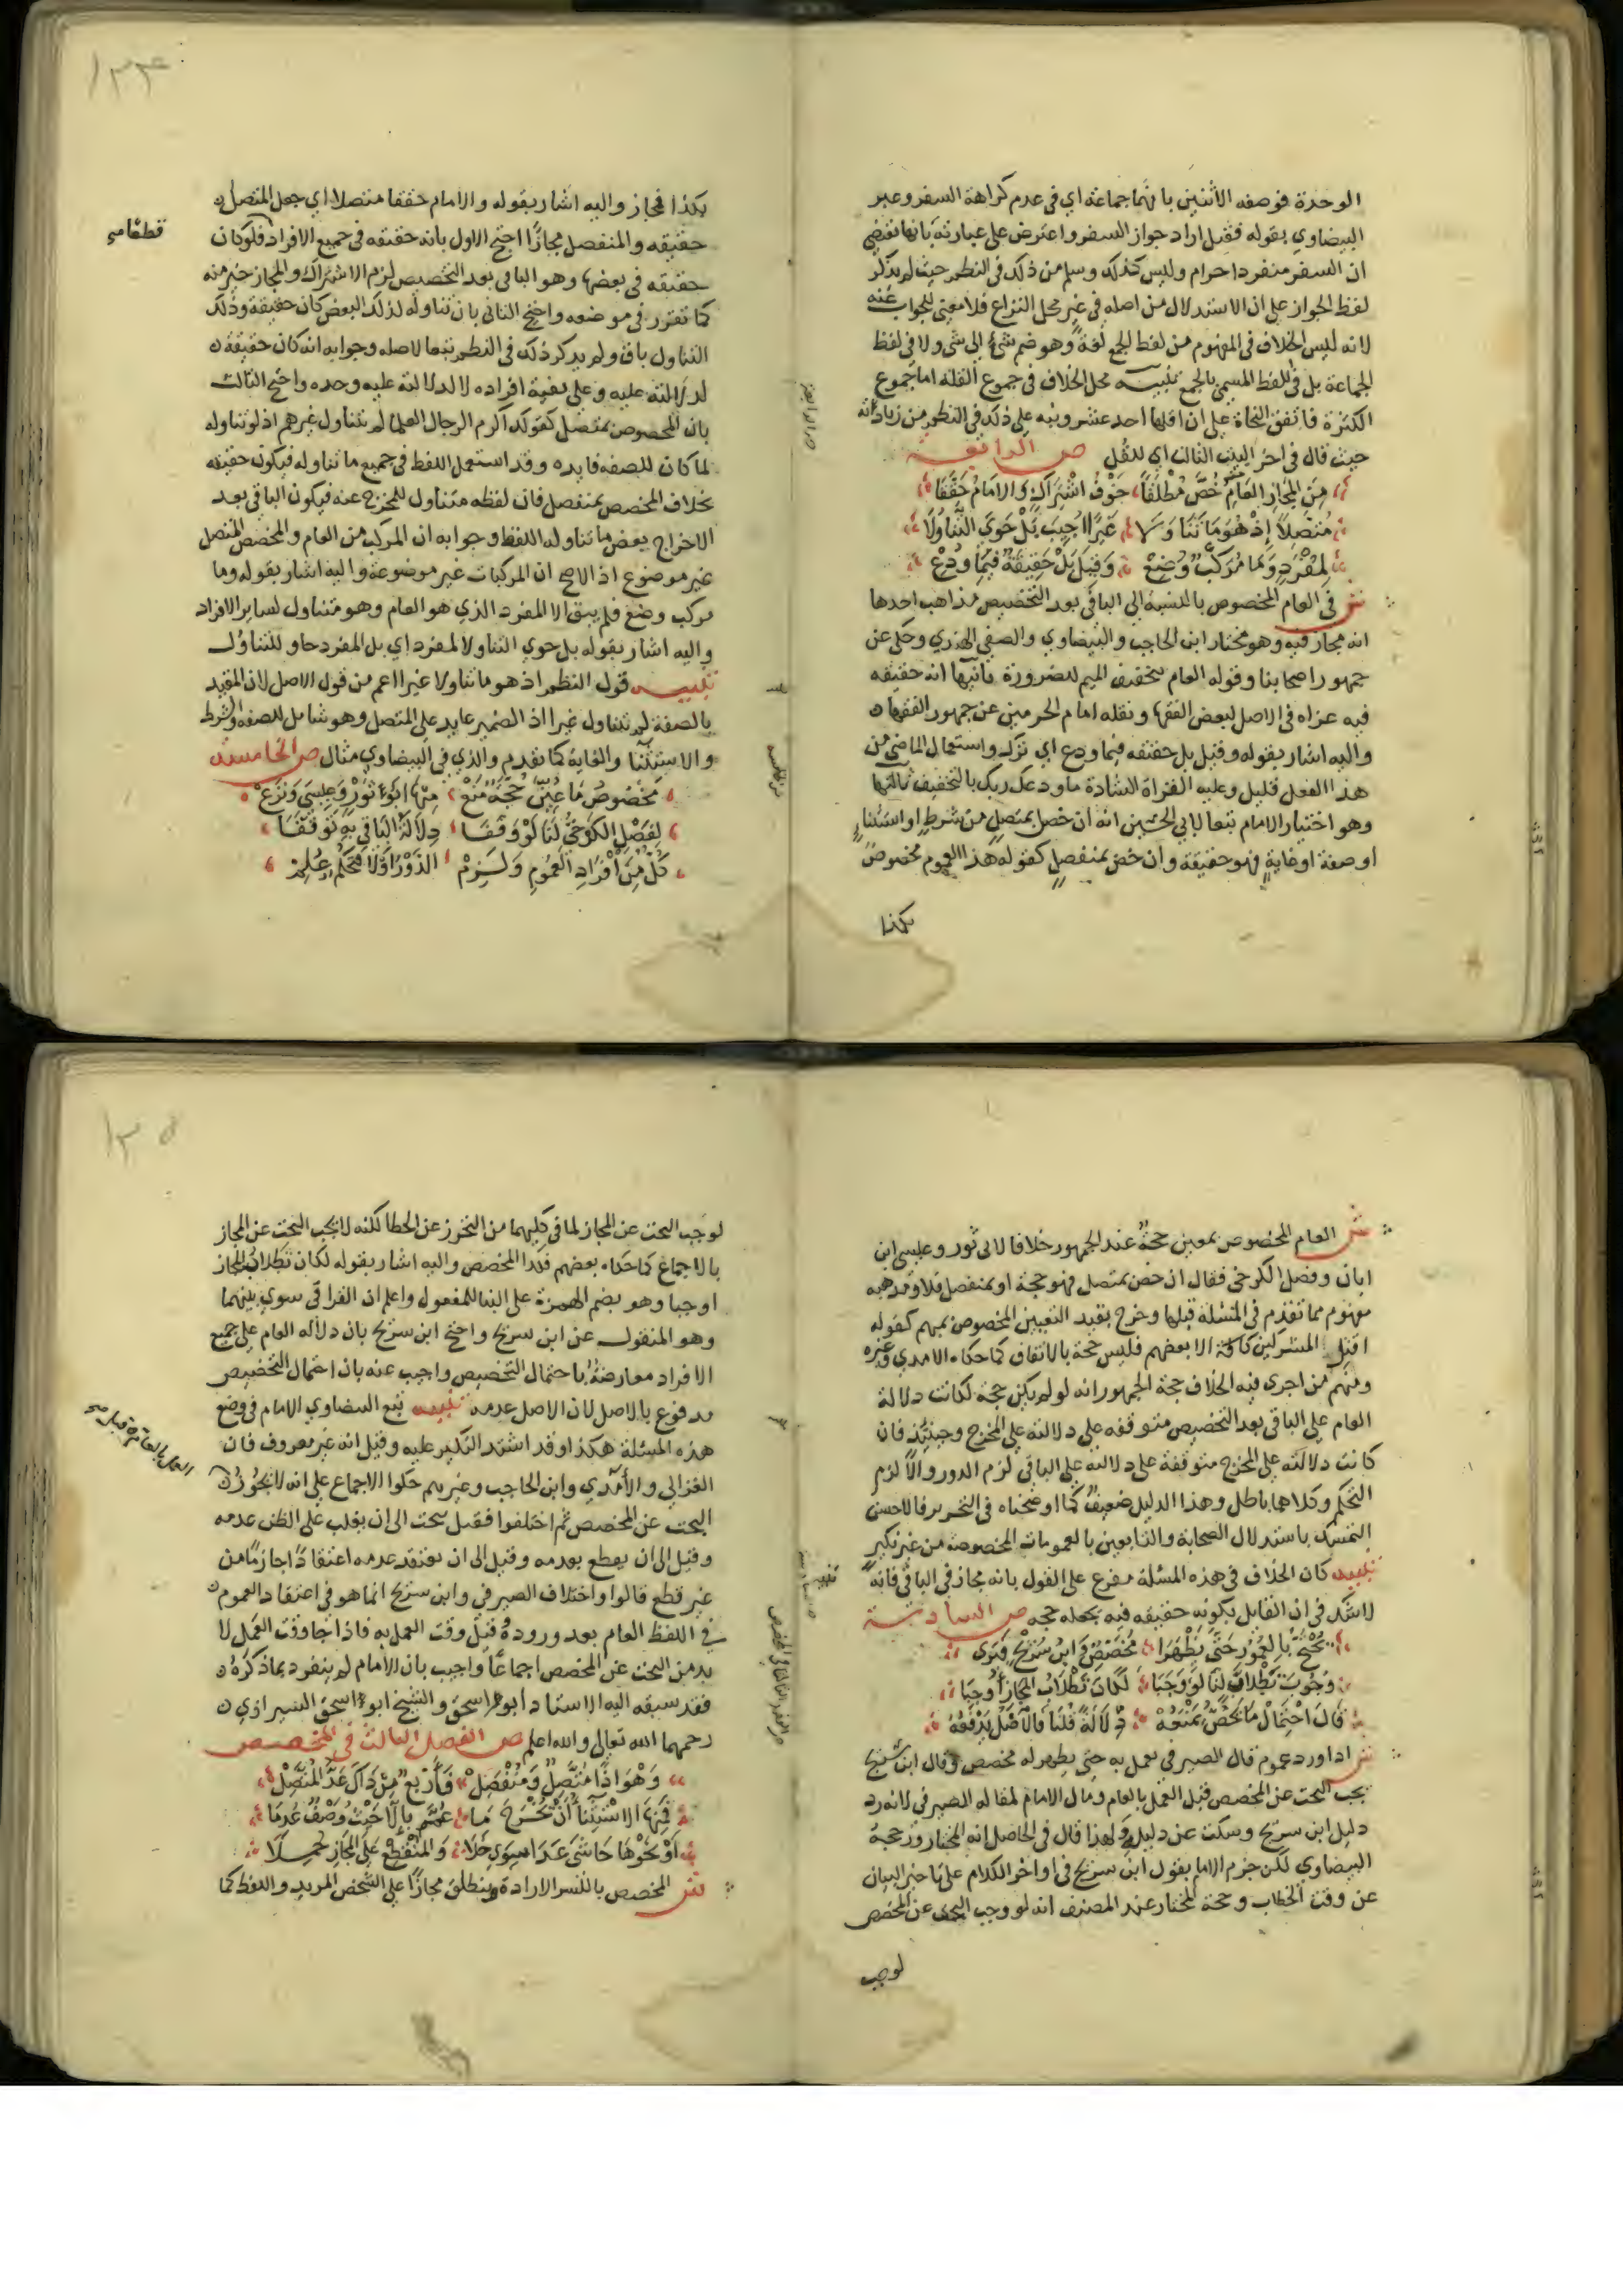 الوحدة فوصفه الاثنين بانهما جماعة اي في عدم كراهة السفر وعبر
البيضاوي بقوله فقيل اراد جواز السفر واعترض على عبارته بانها تقتضي
ان السفر منفردا حرام وليس كذلك وسلم من ذلك في النظم حيث لم يذكر
لفظ الجواز على ان الاستدلال من اصله في غير محل النزاع فلا معنى للجواب عنه
لانه ليس الخلاف في المفهوم من لفظ الجمع لغة وهو ضم شيء الى شي ولا في لفظ
الجماعة بل في اللفظ المسمى بالجمع تنبيه محل الخلاف في جموع القلة اما جموع
الكثرة فاتفق النحاة على ان اقلها احد عشر ونبه على ذلك في النظم من زيادته
حيث قال في اخر البيت الثالث اي للقل ص الرابعة
من المجاز العام خص مطلقا خوف اشتراك والامام حققا
متصلا اذ هو ما تناولا غيرا اجيب بل حوي التناولا
لمفرد وما مركب وضع وقيل بل حقيقة فيما ودع
ش في العام المخصوص بالنسبة الى الباقي بعد التخصيص مذاهب احدها
انه مجاز فيه وهو مختار ابن الحاجب والبيضاوي والصفي الهندي وحكي عن
جمهور اصحابنا وقوله العام بتخفيف الميم للضرورة ثانيها انه حقيقة
فيه عزاه في الاصل لبعض الفقها ونقله امام الحرمين عن جمهور الفقها
واليه اشار بقوله وقيل بل حقيقه فيما ودع اي ترك واستعمال الماضي من
هذا الفعل قليل وعليه القراة الشاذة ما ودعك ربك بالتخفيف ثالثها
وهو اختيار الامام تبعا لابي الحسين انه ان خص بمتصل من شرط او استثناء
او صفة او غاية فهو حقيقة وان خص بمنفصل كقوله هذا العموم مخصوص
بكذا
١٣٤
بكذا فمجاز واليه اشار بقوله والامام حققا متصلا اي جعل المتصل
حقيقه والمنفصل مجازا احتج الاول بانه حقيقه في جميع الافراد فلو كان
قطعا
حقيقه في بعضها وهو الباقي بعد التخصيص لزم الاشتراك والمجاز خير منه
كما تقرر في موضعه واحتج الثاني بان تناوله لذلك البعض كان حقيقة وذلك
التناول باق ولم يذكر ذلك في النظم تبعا لاصله وجوابه انه كان حقيقة
لدلالته عليه وعلى بقية افراده لا لدلالته عليه وحده واحتج الثالث
بان المخصوص بمتصل كقولك اكرم الرجال العلما لم يتناول غيرهم اذ لو تناوله
لما كان للصفه فايده وقد استعمل اللفظ في جميع ما تناوله فيكون حقيقه
بخلاف المخصص بمنفصل فان لفظه متناول للمخرج عنه فيكون الباقي بعد
الاخراج بعض ما تناوله اللفظ وجوابه ان المركب من العام والمخصص المتصل
غير موضوع اذ الاصح ان المركبات غير موضوعة واليه اشار بقوله وما
مركب وضع فلم يبق الا المفرد الذي هو العام وهو متناول لساير الافراد
واليه اشار بقوله بل حوي التناولا لمفرد اي بل المفرد حاو للتناول
تنبيه قول النظم اذ هو ما تناولا غيرا اعم من قول الاصل لان المقيد
بالصفة لم يتناول غيرا اذ الضمير عايد على المتصل وهو شامل للصفة والشرط
والاستثنا والغاية كما تقدم والذي في البيضاوي مثال ص الخامسة
مخصوص ما عين حجة منع منها ابو ثور وعيسى ونزع
لفصل الكرخي لنا لو وقفا دلالة الباقي به توقفا
كل من افراد العموم ولزم الدور او لا فتحكم علم
ش العام المخصوص بمعين حجة عند الجمهور خلافا لابي ثور وعيسى ابن
ابان وفصل الكرخي فقال ان خص بمتصل فهو حجة او بمنفصل فلا وقد هو
مفهوم مما تقدم في المسئلة قبلها وخرج بقيد التعيين المخصوص بمبهم كقوله
اقتلوا المشركين كافة الا بعضهم فليس حجة بالاتفاق كما حكاه الامدي وغيره
ومنهم من اجرى فيه الخلاف حجة الجمهور انه لو لم يكن حجة لكانت دلالة
العام على الباقي بعد التخصيص متوقفه على دلالته على المخرج وحينئذ فان
كانت دلالته على المخرج متوقفة على دلالته على الباقي لزم الدور والا لزم
التحكم وكلاهما باطل وهذا الدليل ضعيف كما اوضحناه في التحرير فالاحسن
التمسك باستدلال الصحابة والتابعين بالعمومات المخصوصة من غير نكير
تنبيه كان الخلاف في هذه المسئلة مفرع على القول بانه مجاز في الباقي فانه
لا شك في ان القايل بكونه حقيقه فيه يجعله حجه ص السادسة
يحتج بالعموم حتى يظهرا مخصص وابن سريج فيرى
وجوب تطلاب لنا لو وجبا لكان تطلاب المجاز اوجبا
قال احتمال ما يخص يمنعه دلالة قلنا فالاصل يدفعه
ش اذا ورد عموم قال الصيرفي نعمل به حتى يظهر له مخصص وقال ابن سريج
يجب البحث عن المخصص قبل العمل بالعام ومال الامام لمقاله الصيرفي لانه رد
دليل ابن سريج وسكت عن دليله ولهذا قال في الحاصل انه المختار ورجحه
البيضاوي لكن جزم الامام بقول ابن سريج في اواخر الكلام على تاخير البيان
عن وقت الخطاب وحجة المختار عند المصنف انه لو وجب البحث عن المخصص
لوجب
١٣٥
لوجب البحث عن المجاز لما في كليهما من التحرز عن الخطا لكنه لا يجب البحث عن المجاز
بالاجماع كما حكاه بعضهم فكذا المخصص واليه اشار بقوله لكان تطلاب المجاز
اوجبا وهو بضم الهمزة على البنا للمفعول واعلم ان القرافي سوي بينهما
وهو المنقول عن ابن سريج واحتج ابن سريج بان دلاله العام على جميع
الافراد معارضة باحتمال التخصيص واجيب عنه بان احتمال التخصيص
مدفوع بالاصل لان الاصل عدمه تنبيه تبع البيضاوي الامام في وضع
هذه المسئلة هكذا وقد اشتد النكير عليه وقيل انه غير معروف فان
الغزالي والآمدي وابن الحاجب وغيرهم حكوا الاجماع على انه لا يجوز
البحث عن المخصص ثم اختلفوا فقيل يبحث الى ان يغلب على الظن عدمه
وقيل الى ان يقطع بعدمه وقيل الى ان يعتقد عدمه اعتقادا جازما من
غير قطع قالوا واختلاف الصيرفي وابن سريج انما هو في اعتقاد العموم
في اللفظ العام بعد وروده قبل وقت العمل به فاذا جا وقت العمل لا
بد من البحث عن المخصص اجماعا واجيب بان الامام لم ينفرد بما ذكره
فقد سبقه اليه الاستاد ابو اسحق والشيخ ابو اسحق الشيرازي
رحمهما الله تعالى والله اعلم ص الفصل الثالث في المخصص
وهو اذا متصل ومنفصل فاربع من ذاك عد المتصل
فمنها الاستثنا ان تخرج ما عم بالا حيث وصف عدما
او نحوها حاشى عدا سوي خلا والمنقطع على المجاز حملا
ش المخصص بالكسر الارادة وينطلق مجازا على الشخص المريد واللفظ كما